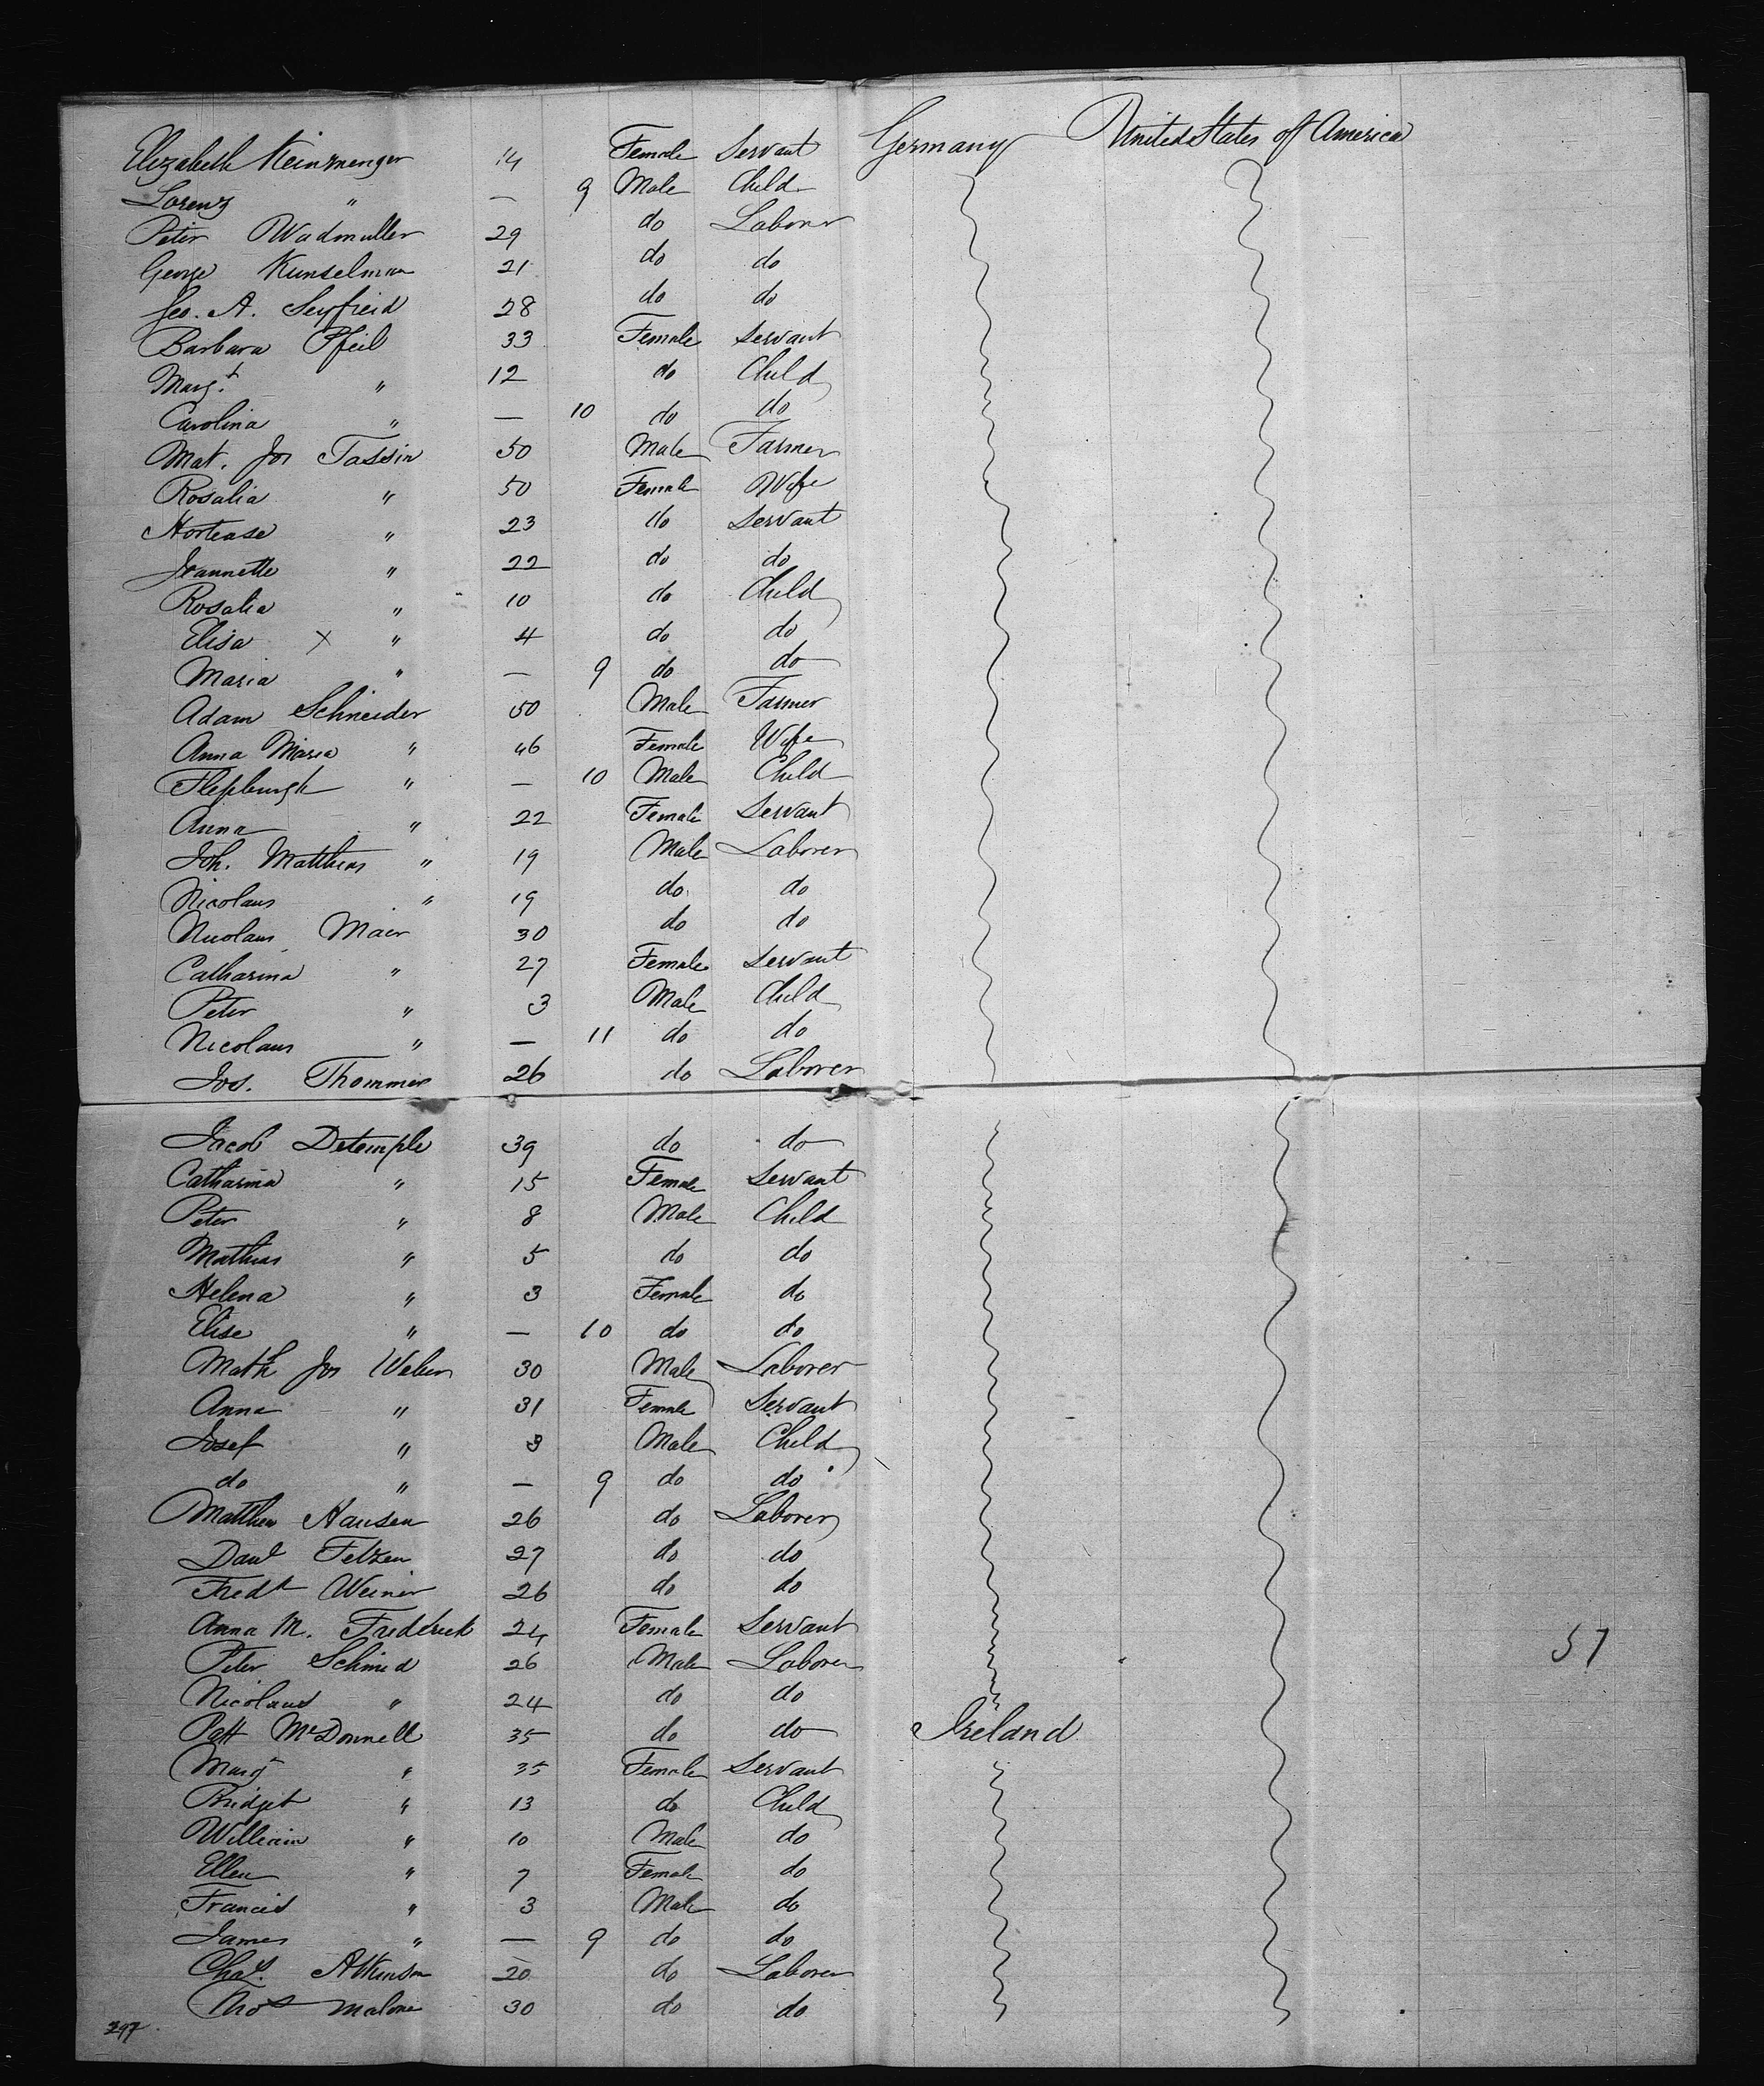 Elizabeth Keinzmenger 14 Female Servant Germany United States of America
Lorenz " — 9 Male Child
Peter Wadmuller 29 do Laborer
George Kunselman 21 do do
Geo. A. Seyfreid 28 do do
Barbara Pfeil 33 Female Servant
Marg.t " 12 do Child
Carolina " — 10 do do
Mat. Jos Tassin 50 Male Farmer
Rosalia " 50 Female Wife
Hortease " 23 do Servant
Jeannette " 22 do do
Rosalia " 10 do Child
Elisa X " 4 do do
Maria " — 9 do do
Adam Schneider 50 Male Farmer
Anna Maria " 46 Female Wife
" — 10 Male Child
Anna " 22 Female Servant
Joh. Matthias " 19 Male Laborer
Nicolaus " 19 do do
Nicolaus Maier 30 do do
Catharina " 27 Female Servant
Peter " 3 Male Child
Nicolaus " — 11 do do
Jos. Thommes 26 do Laborer
Jacob Detemple 39 do do
Catharina " 15 Female Servant
Peter " 8 Male Child
Mathias " 5 do do
Helena " 3 Female do
Elise " — 10 do do
Math Jos Weber 30 Male Laborer
Anna " 31 Female Servant
Josef " 3 Male Child
do " — 9 do do
Matthew Hausen 26 do Laborer
Danl Feltzen 27 do do
Fredk Weiner 26 do do
Anna M. Frederick 24 Female Servant 57
Peter Schmid 26 Male Laborer
Nicolaus " 24 do do
Patt McDonnell 35 do do Ireland
Margt " 35 Female Servant
Bridget " 13 do Child
William " 10 Male do
Ellen " 7 Female do
Francis " 3 Male do
James " — 9 do do
Chas. Atkinson 20 do Laborer
Thos Malone 30 do do
297